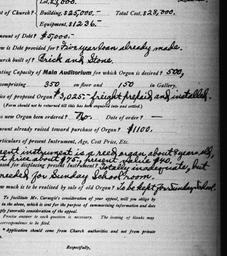 Lot, $3,000.
of Church? - Building, $25,000.- Total Cost, $28,000.
Equipment, $1236.-
Amount of Debt? $5000.-
is Debt provided for? Five year loan already made.
Church built of? Brick and Stone.
Seating Capacity of Main Auditorium for which Organ is desired? 500,
comprising 350 on floor and 150 in Gallery.
of proposed Organ? $3,025.- freight prepaid and installed.
(Form should not be returned till this has been inquired into and settled.)
new Organ been Ordered? No. Date of order? -
amount already raised toward purchase of Organ? $1100.
Particulars of present Instrument, Age, Cost Price, Etc.
present instrument is a reed organ about 9 years old,
price about $75, present value $40.
reason for displacing present Instrument? Totally inadequate, but
needed for Sunday School room.
much is to be realised by sale of old Organ? To be kept for Sunday School.
To facilitate Mr. Carnegie's consideration of your appeal, will you oblige by
in the above, which is sent for the purpose of summarising information and
favorable consideration of the appeal.
Precise answer to each question is necessary. The issuing of blanks may
correspondence to be
* Application should come from Church authorities and not from private
Respectfully,